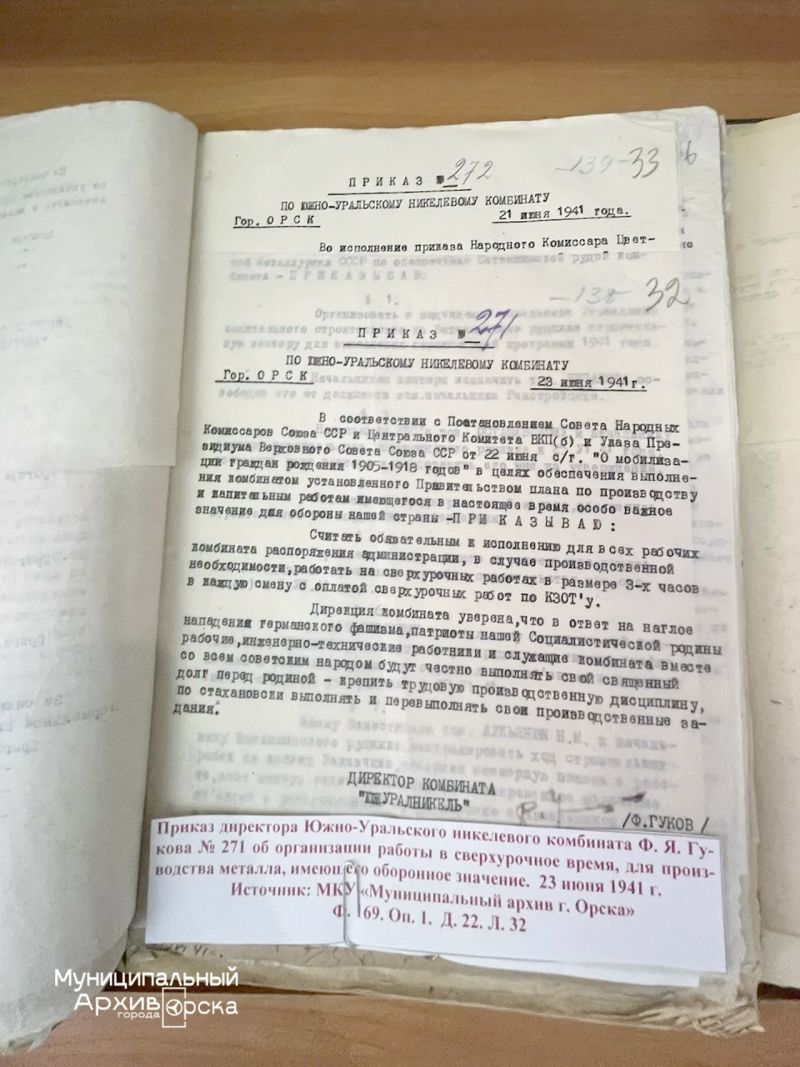 -139- 33 6
ПРИКАЗ № 272
ПО ЮЖНО-УРАЛЬСКОМУ НИКЕЛЕВОМУ КОМБИНАТУ
Гор. ОРСК 21 июня 1941 года.
Во исполнение приказа Народного Комиссара Цвет-
ной металлургии СССР по обеспечению рудой ком-
бината - ПРИКАЗЫВАЮ:
§ 1.
-138- 32
ПРИКАЗ № 271
ПО ЮЖНО-УРАЛЬСКОМУ НИКЕЛЕВОМУ КОМБИНАТУ
Гор. ОРСК 23 июня 1941 г.
В соответствии с Постановлением Совета Народных
Комиссаров Союза ССР и Центрального Комитета ВКП(б) и Указа Пре-
зидиума Верховного Совета Союза ССР от 22 июня с/г. "О мобилиза-
ции граждан рождения 1905-1918 годов" в целях обеспечения выполне-
ния комбинатом установленного Правительством плана по производству
и капитальным работам имеющегося в настоящее время особо важное
значение для обороны нашей страны -ПРИКАЗЫВАЮ:
Считать обязательным к исполнению для всех рабочих
комбината распоряжения администрации, в случае производственной
необходимости, работать на сверхурочных работах в размере 3-х часов
в каждую смену с оплатой сверхурочных работ по КЗОТ'у.
Дирекция комбината уверена, что в ответ на наглое
нападения германского фашизма, патриоты нашей Социалистической родины
рабочие, инженерно-технические работники и служащие комбината вместе
со всем советским народом будут честно выполнять свой священный
долг перед родиной - крепить трудовую производственную дисциплину,
по стахановски выполнять и перевыполнять свои производственные за-
дания.
ДИРЕКТОР КОМБИНАТА
"ЮЖУРАЛНИКЕЛЬ"
/Ф.ГУКОВ/
Приказ директора Южно-Уральского никелевого комбината Ф. Я. Гу-
кова № 271 об организации работы в сверхурочное время, для произ-
водства металла, имеющего оборонное значение. 23 июня 1941 г.
Источник: МКУ «Муниципальный архив г. Орска»
Ф. 169. Оп. 1. Д. 22. Л. 32
Муниципальный
Архив Орска
города